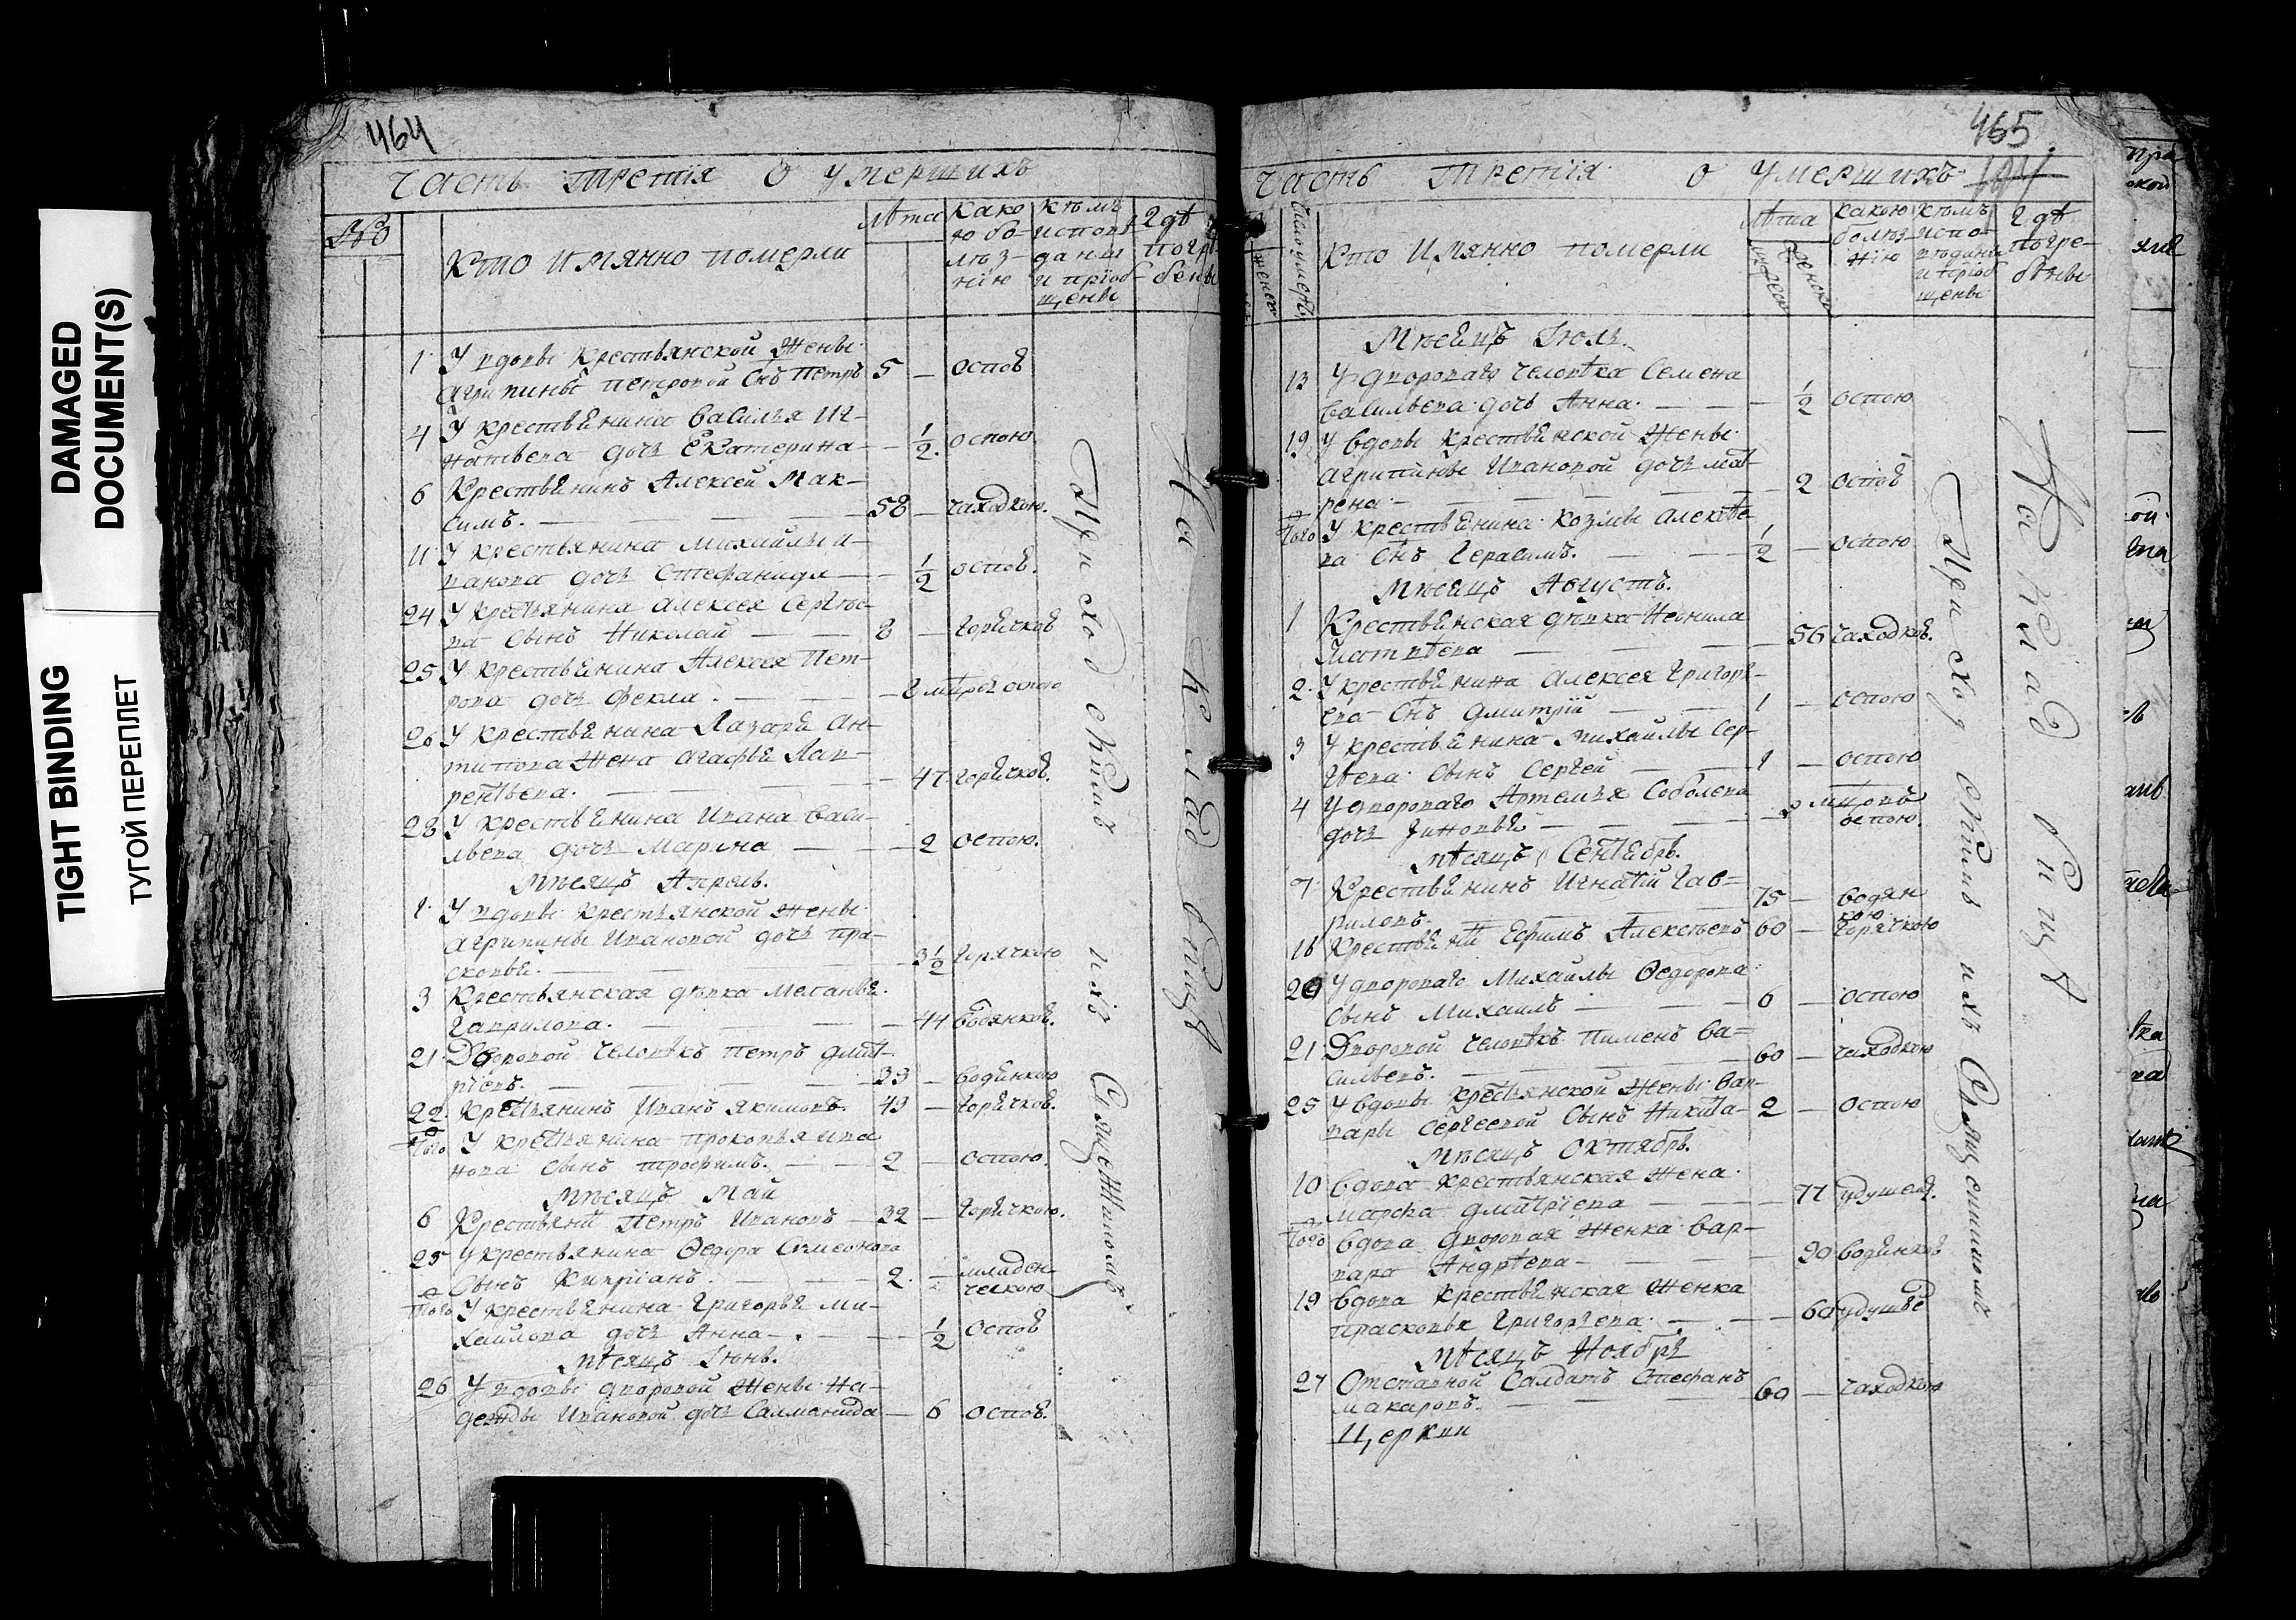 DAMAGED
DOCUMENT(S)
TIGHT BINDING
ТУГОЙ ПЕРЕПЛЕТ
464
Часть третїя О умершихъ
№
Кто имянно померли
лѣта
како
ю бо-
лѣз-
нїю
кѣмъ
испов
данн
и прїоб
щены
гдѣ
погр
бены
1 У вдовы крестьянской Жены
Агрипины петровой Снъ Петръ 5 — оспой
4 У крестьянина Василья Иг-
натьева дочь Екатерина — 1/2 оспою
6 Крестьянинъ Алексей Мак-
симъ. — 58 — чахоткою.
11 У крестьянина михайлы и-
ванова дочь Стефанида — 1/2 оспой.
24 У крестьянина Алексея Сергѣе-
ва сынъ Николай — 8 — горячкой
25 У крестьянина Алексея Пет-
рова дочь Фекла. — оспою
26 У крестьянина Лазаря Ан-
типова жена агафья Лав-
рентьева. — 47 горячкой.
28 У крестьянина Ивана Васи-
льева дочь Марина — 2 оспою.
Мѣсяцъ Апрель.
1 У вдовы крестьянской жены
Агрипины Ивановой дочь пра-
сковья. — 3 1/2 горячкою
3 Крестьянская дѣвка меланья
Гаврилова. — 44 водянкой.
21 Дворовой человѣкъ петръ дмит-
рїевъ. — 39 — водянкою
22 Крестьянинъ Иванъ якимовъ. 49 — горячкой.
того У крестьянина прокопья ива
нова сынъ трофимъ. — 2 — оспою.
мѣсяцъ Май
6 Крестьянинъ Петръ Ивановъ — 32 — горячкою.
25 У крестьянина Ѳедора Симеонова
сынъ Кипрїанъ. — 2. — младен-
ческою
того У крестьянина Григорья ми-
хайлова дочь Анна — 1/2 оспой
мѣсяцъ Іюнь.
26 У вдовы дворовой жены На-
дежды Ивановой дочь Саломонида — 6 оспой.
Приходскимъ ихъ Священникомъ
На кладбищѣ
465
101
Часть третїя о умершихъ
число умерш
Кто имянно померли
лѣта
мужеск
женска
какою
болѣз-
нїю
кѣмъ
испо-
вѣдани
и прїоб
щены
гдѣ
погре-
бены
Мѣсецъ Іюль.
13 У двороваго человѣка Семена
Васильева дочь Анна. — 1/2 оспою
19 У вдовы крестьянской жены
агрипины Ивановой дочь мат-
рена — 2 оспой
того У крестьянина Козмы алексѣе
ва Снъ Герасимъ. — 1/2 — оспою
Мѣсецъ Августъ.
1 Крестьянская дѣвка Неонила
Матвѣева — 56 чахоткой.
2 У крестьянина Алексея Григорь-
ева Снъ Дмитрїй — 1 — оспою
3 У крестьянина михайлы Сер-
гѣева сынъ Сергей — 1 — оспою
4 У двороваго Артемья Соболева
дочь Зиновья — мцовъ
оспою.
мѣсяцъ Сентябрь.
7 Крестьянинъ Игнатїй Гав-
риловъ. 75 — водян
кою
16 Крестьянинъ Ефимъ Алексѣевъ 60 — горячкою
20 У двороваго Михайлы Ѳедорова
сынъ Михаилъ — 6 — оспою
21 Дворовой человѣкъ Пименъ Ва-
сильевъ. — 60 — чахоткою
25 У вдовы крестьянской жены Вар-
вары Сергеевой сынъ Никита — 2 — оспою
Мѣсяцъ Октябрь.
10 вдова крестьянская жена
марфа дмитрїева — 77 удушей.
того вдова дворовая женка Вар-
вара Андрѣева — 90 водянкой
19 вдова крестьянская женка
прасковья Григорьева — 60 удушьё
мѣсяцъ Ноябрь
27 Отставной Салдатъ Стефанъ
макаровъ. — 60 — чахоткою
Церкви
Приходскимъ ихъ Священникомъ
На кладбищѣ